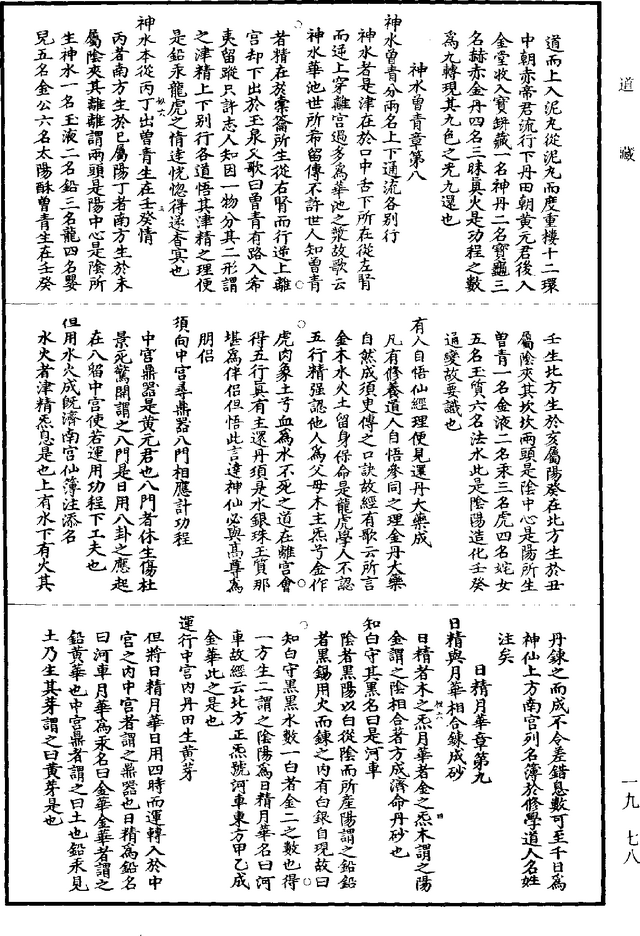 道藏
一九 七八
道而上入泥丸從泥丸而度重樓十二環
中朝赤帝君流行下丹田朝黃元君後入
金堂收入寶缾藏一名神丹二名寶龜三
名赫赤金丹四名三昧真火是功程之數
爲九轉現其九色之光九還也
神水曾青章第八
神水曾青分兩名上下通流各別行
神水者是津在於口中舌下所在從左腎
而逆上穿離宮過多爲華池之漿故歌云
神水華池世所希留傳不許世人知曾青
者精在於崑崙所生從右腎而行逆上離
宮却下出於玉泉父歌曰曾青有路入希
夷留蹤只許志人知因一物分其二形謂
之津精上下別行各道悟其津精之理便
是鉛汞龍虎之情達恍惚得遂杳冥也
神水本從丙丁出曾青生在壬癸情
丙者南方生於巳屬陽丁者南方生於未
屬陰夾其離離謂兩頭是陽中心是陰所
生神水一名玉液二名鉛三名龍四名嬰
兒五名金公六名太陽酥曾青生在壬癸
壬生北方生於亥屬陽癸在北方生於丑
屬陰夾其坎坎兩頭是陰中心是陽所生
曾青一名金液二名汞三名虎四名姹女
五名玉質六名法水此是陰陽造化壬癸
通變故要識也
有人自悟仙經理便見還丹大藥成
凡有修養道人自悟參同之理金丹大藥
自然成須史傳之口訣故經有歌云所言
金木水火土留身保命是龍虎學人不認
五行精强認他人爲父母木主炁兮金作
虎肉象土兮血爲水不死之道在離宮會
得五行真有主還丹須是水銀珠玉質那
堪爲伴侶但悟此言達神仙必與髙尊爲
朋侶
須向中宮尋鼎器八門相應計功程
中宮鼎器是黃元君也八門者休生傷杜
景死驚開謂之八門是日用八卦之應起
在八節中宮使若運用功程下工夫也
但用水火成旣濟南宮仙簿注添名
水火者津精炁息是也上有水下有火其
丹鍊之而成不令差錯息數可至千日爲
神仙上方南宮列名簿於修學道人名姓
注矣
日精月華章第九
日精與月華相合鍊成砂
日精者木之炁月華者金之炁木謂之陽
金謂之陰相合著方成濟命丹砂也
知白守其黑名曰是河車
陰者黑陽以白從陰而所產陽謂之鉛鉛
者黑錫用火而鍊之内有白銀自現故曰
知白守黑黑水數一白者金二之數也得
一方生二謂之陰陽爲日精月華名曰河
車故經云北方正炁號河車東方甲乙成
金華此之是也
運行中宮内丹田生黃芽
但將日精月華日用四時而運轉入於中
宮之内中宮者謂之鼎器也日精爲鉛名
曰河車月華爲汞名曰金華金華者謂之
鉛黃華也中宮鼎者謂之曰土也鉛汞見
土乃生其芽謂之曰黃芽是也